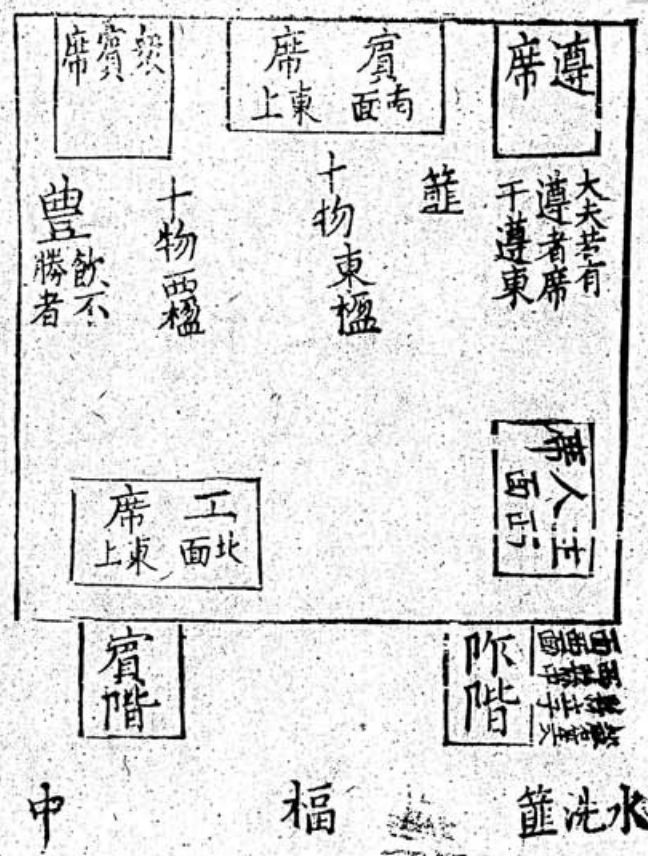 遵
席
賓 南面
席 東上
衆
賓
席
大夫若有
遵者席
于遵東
篚
十物東楹
十物西楹
豊 飲不
勝者
主人
席
西面
工 北面
席 東上
阼階
賓階
水
洗
篚
楅
中